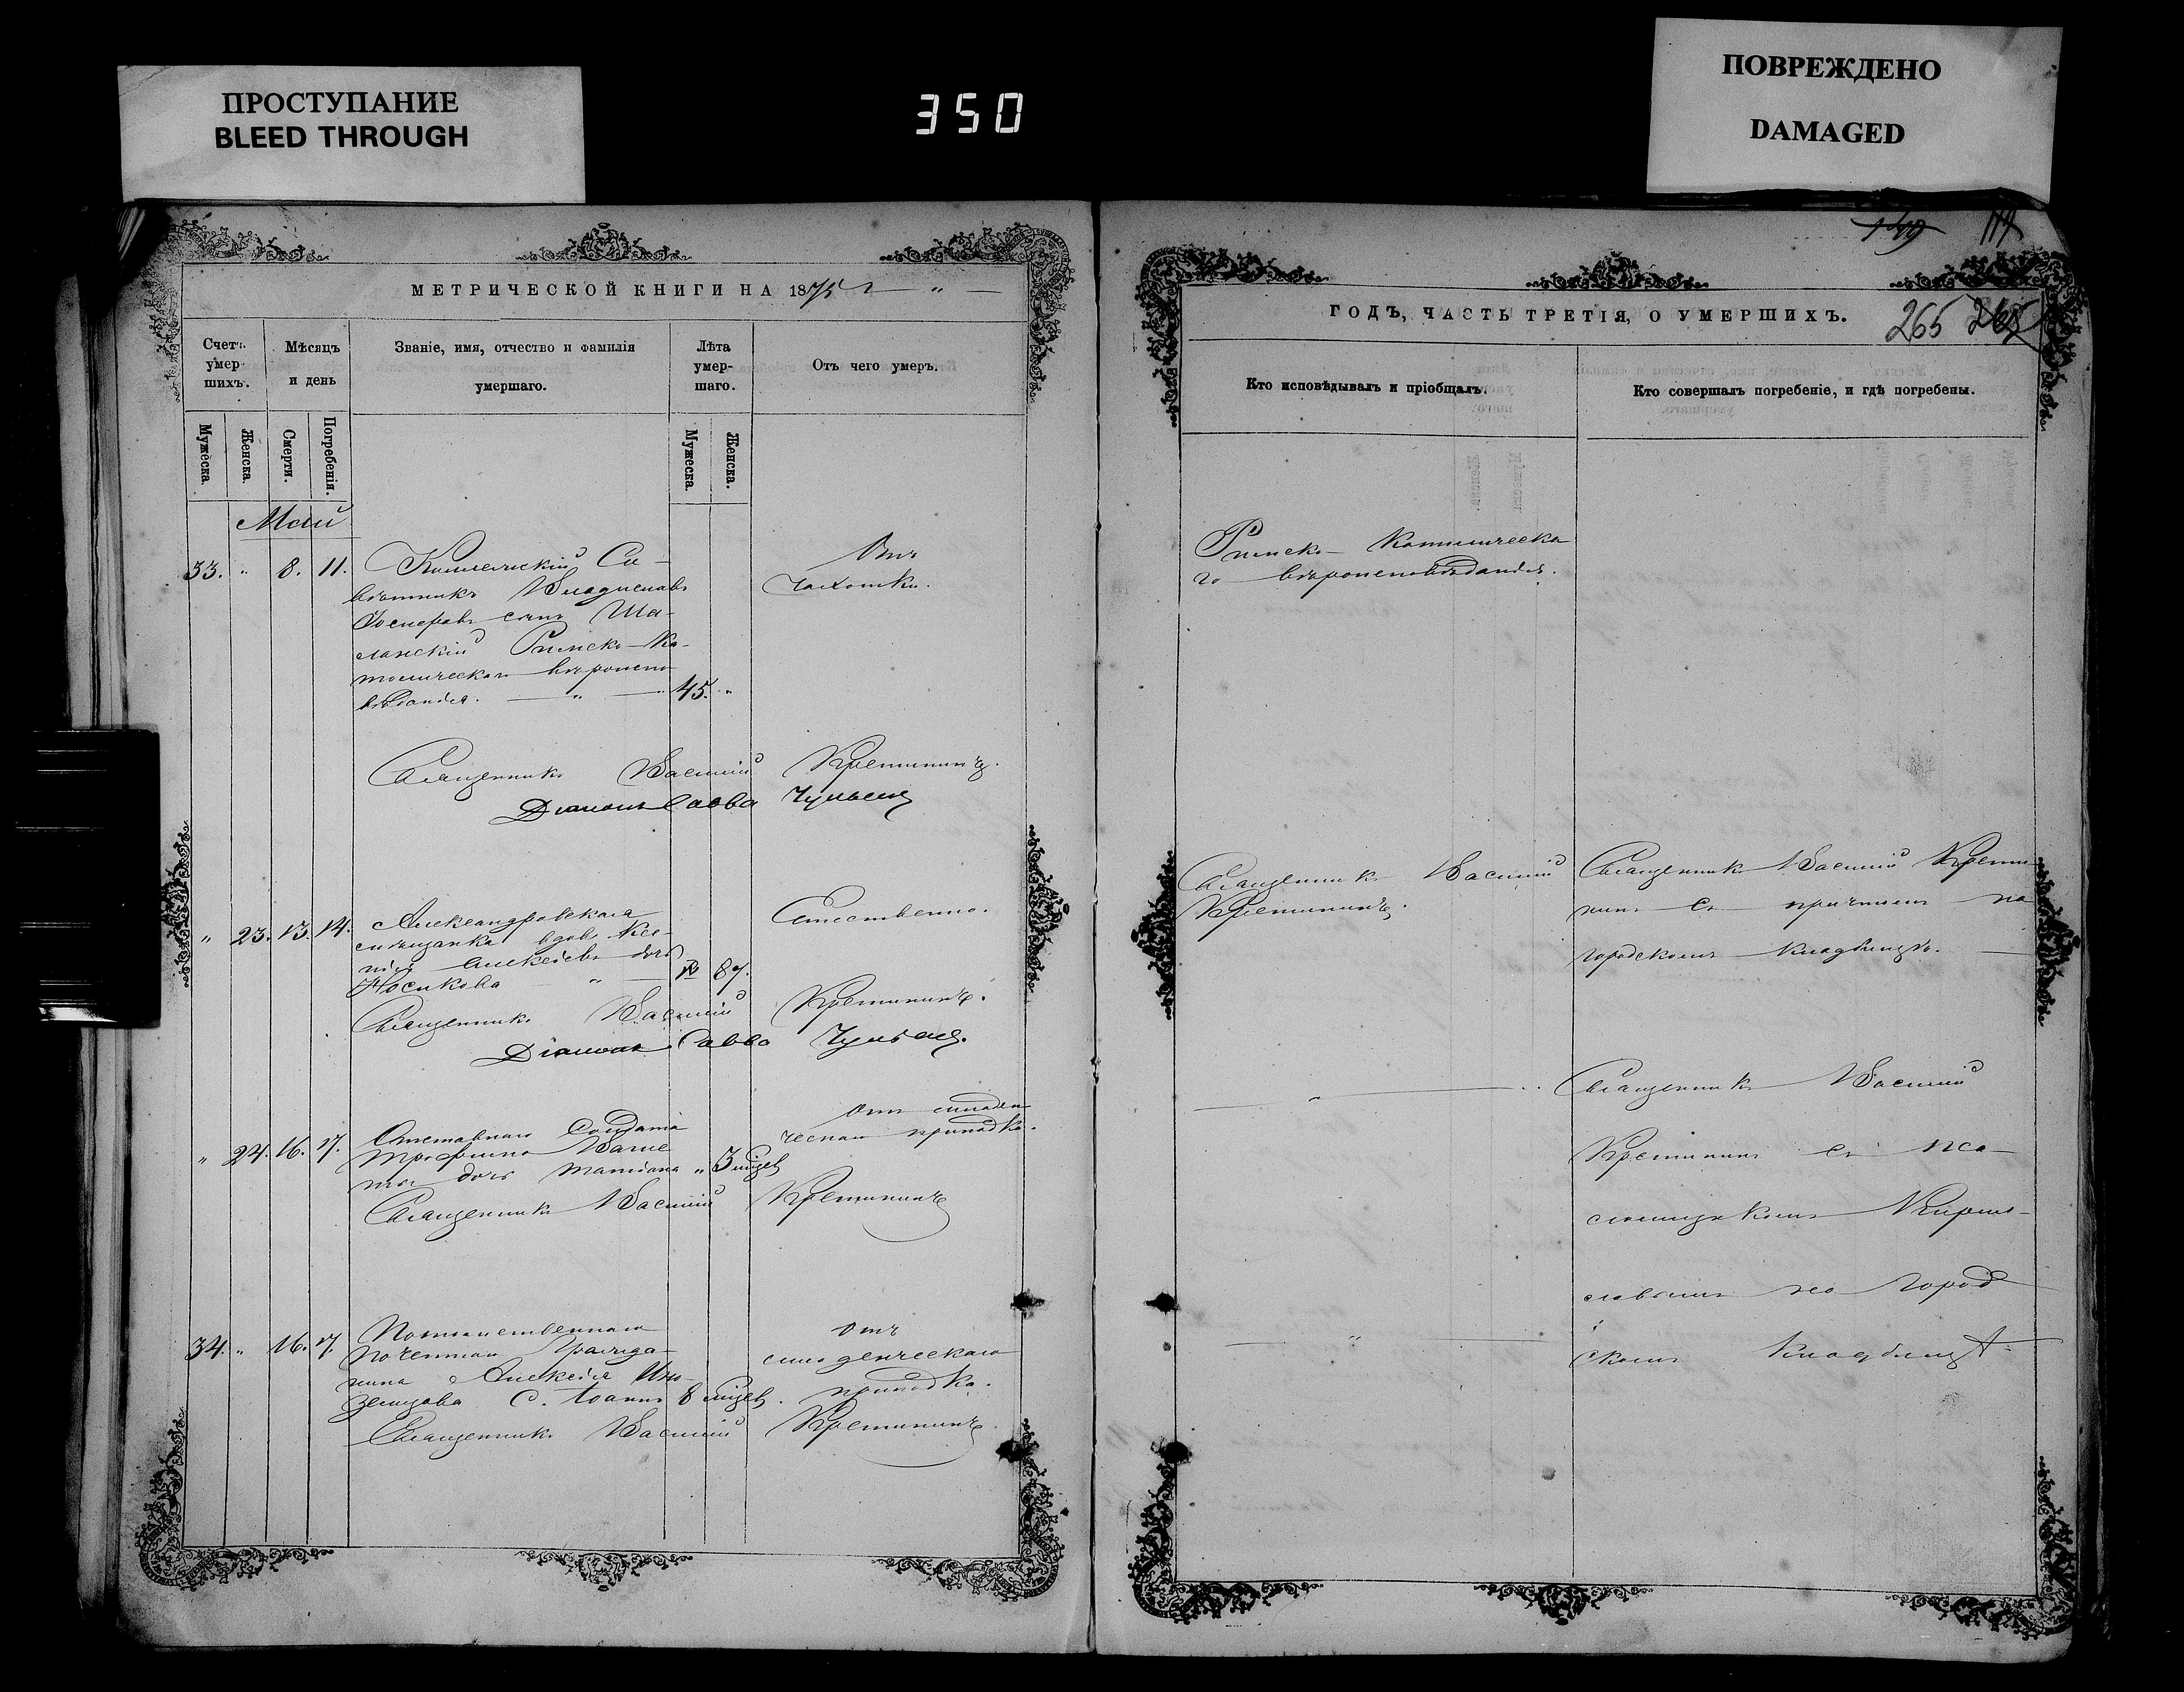 ПРОСТУПАНИЕ
BLEED THROUGH
350
ПОВРЕЖДЕНО
DAMAGED
МЕТРИЧЕСКОЙ КНИГИ НА 1875 г
Счетъ умершихъ.
Мѣсяцъ и день
Званіе, имя, отчество и фамилія умершаго.
Лѣта умершаго.
Отъ чего умеръ.
Мужеска.
Женска.
Смерти.
Погребенія.
Мужеска.
Женска.
Май
33. " 8. 11.
Коллежскій Со-
вѣтникъ Владиславъ
сынъ
Римско-Ка-
толическаго вѣроиспо
вѣданія. — " — 45. "
Отъ
чахотки.
Священникъ Василій Кретининъ.
Діаконъ Савва
" 23. 13. 14.
Александровская
мѣщанка вдова Ксе-
нія Алексѣева дочь
Носикова — " — 87.
Естественно.
Священникъ Василій Кретининъ.
Діаконъ Савва
" 24. 16. 17.
Отставнаго Солдата
Трофима
дочь Татіана " 3 мѣсц
отъ младен
ческаго припадка.
Священникъ Василій Кретининъ
34. " 16. 17.
Потомственнаго
почетнаго Гражда-
нина Алексѣя Ино-
земцова с. Іоаннъ 8 мѣсц.
отъ
младенческаго
припадка.
Священникъ Василій Кретининъ
ГОДЪ, ЧАСТЬ ТРЕТІЯ, О УМЕРШИХЪ.
265
Кто исповѣдывалъ и пріобщалъ.
Кто совершалъ погребеніе, и гдѣ погребены.
Римско-Католическа
го вѣроисповѣданія.
Священникъ Василій
Кретининъ.
Священникъ Василій Крети-
нинъ съ причтомъ на
городскомъ кладбищѣ. —
— " —
Священникъ Василій
Кретининъ съ Пса-
ломщикомъ Кирил-
ловымъ на Город
— " —
скомъ Кладбищѣ